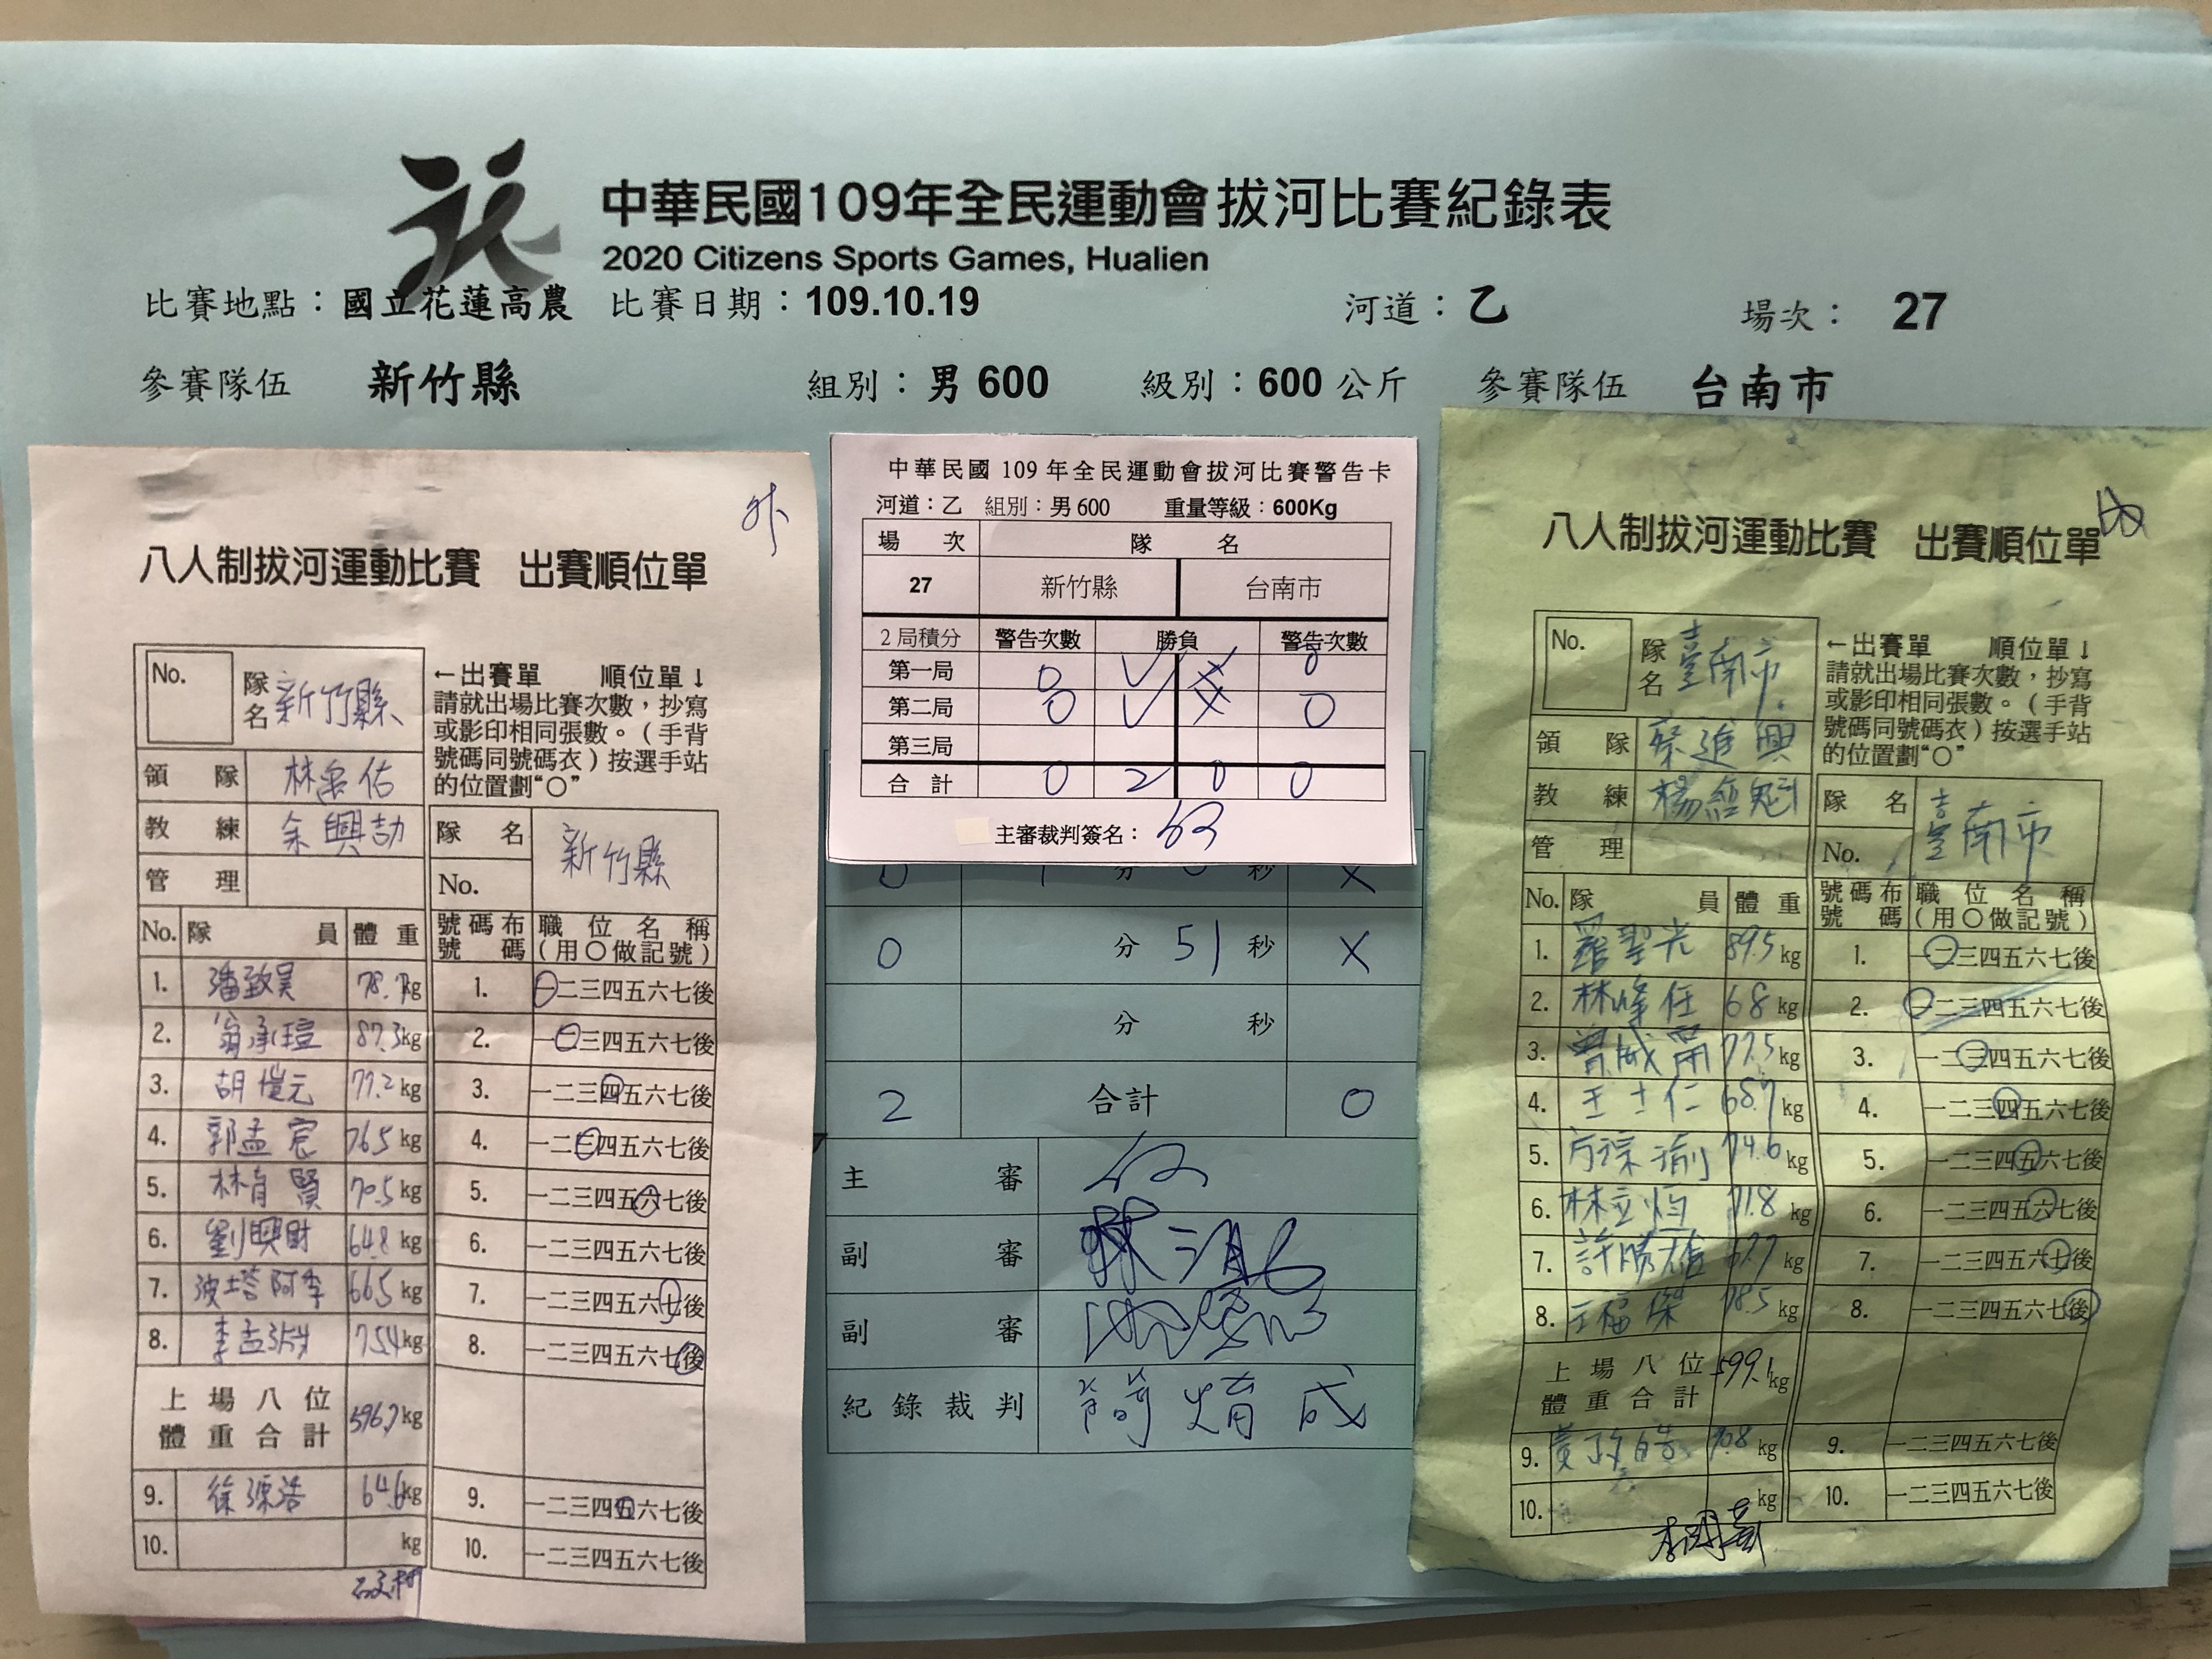 中華民國109年全民運動會拔河比賽紀錄表
2020 Citizens Sports Games, Hualien
比賽地點：國立花蓮高農 比賽日期：109.10.19 河道：乙 場次： 27
參賽隊伍 新竹縣 組別：男 600 級別：600 公斤 參賽隊伍 台南市
外
八人制拔河運動比賽 出賽順位單
No. 隊名 新竹縣
←出賽單 順位單↓
請就出場比賽次數，抄寫
或影印相同張數。（手背
號碼同號碼衣）按選手站
的位置劃“○”
領隊
教練 余興劼
管理
隊名 新竹縣
No.
No. 隊員 體重 號碼布號碼 職位名稱（用○做記號）
1. 潘致昊 78.7kg 1. 一二三四五六七後
2. 翁承瑄 87.3kg 2. 一二三四五六七後
3. 胡愷元 77.2kg 3. 一二三四五六七後
4. 郭孟宸 76.5kg 4. 一二三四五六七後
5. 林育賢 70.5kg 5. 一二三四五六七後
6. 劉興財 64.8kg 6. 一二三四五六七後
7. 波塔阿季 66.5kg 7. 一二三四五六七後
8. 李孟 75.4kg 8. 一二三四五六七後
上場八位體重合計 596.7kg
9. 徐源浩 64.6kg 9. 一二三四五六七後
10. kg 10. 一二三四五六七後
中華民國 109 年全民運動會拔河比賽警告卡
河道：乙 組別：男 600 重量等級：600Kg
場次 隊名
27 新竹縣 台南市
2局積分 警告次數 勝負 警告次數
第一局 0 ✓ X 0
第二局 0 ✓ X 0
第三局
合計 0 2 0 0
主審裁判簽名：
0 1 分 秒 X
0 分 51 秒 X
分 秒
2 合計 0
主審
副審
副審
紀錄裁判 簡焴成
八人制拔河運動比賽 出賽順位單
No. 隊名 臺南市
←出賽單 順位單↓
請就出場比賽次數，抄寫
或影印相同張數。（手背
號碼同號碼衣）按選手站
的位置劃“○”
領隊 蔡進興
教練 楊經魁
管理
隊名 臺南市
No.
No. 隊員 體重 號碼布號碼 職位名稱（用○做記號）
1. 羅聖光 89.5kg 1. 一二三四五六七後
2. 林峰任 68kg 2. 一二三四五六七後
3. 曾威 77.5kg 3. 一二三四五六七後
4. 王士仁 68.7kg 4. 一二三四五六七後
5. 方琮渝 74.6kg 5. 一二三四五六七後
6. 林立 71.8kg 6. 一二三四五六七後
7. 許勝雄 67.7kg 7. 一二三四五六七後
8. 王福傑 78.5kg 8. 一二三四五六七後
上場八位體重合計 599.1kg
9. 黃政皓 70.8kg 9. 一二三四五六七後
10. kg 10. 一二三四五六七後